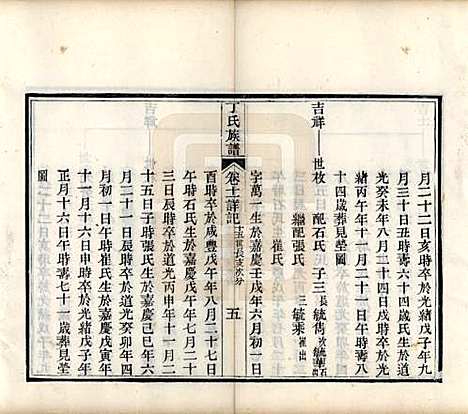 月二十二日亥時卒於光緒戊子年九
月三十日丑時壽六十四歲氏生於道
光癸未年八月二十日戌時卒於光
緒丙午年十一月二日午時壽八
十四歲葬見塋圖
吉祥 世枚 配石氏 子三 長毓雋 次毓
繼配張氏 三毓 崔出
崔氏
字萬一生於嘉慶壬戌年六月初一日
丁氏族譜
卷 詳記 五
酉時卒於咸豐戊午年八月二十七日
午時石氏生於嘉慶戊午年七月二十
三日辰時卒於道光丙申年十一月二
十五日子時張氏生於嘉慶己巳年十
一月二十一日辰時卒於道光癸卯年四
月初一日午時崔氏生於嘉慶戊寅年
十一月十六日申時卒於光緒戊子年
正月十六日午時壽七十一歲葬見塋
圖